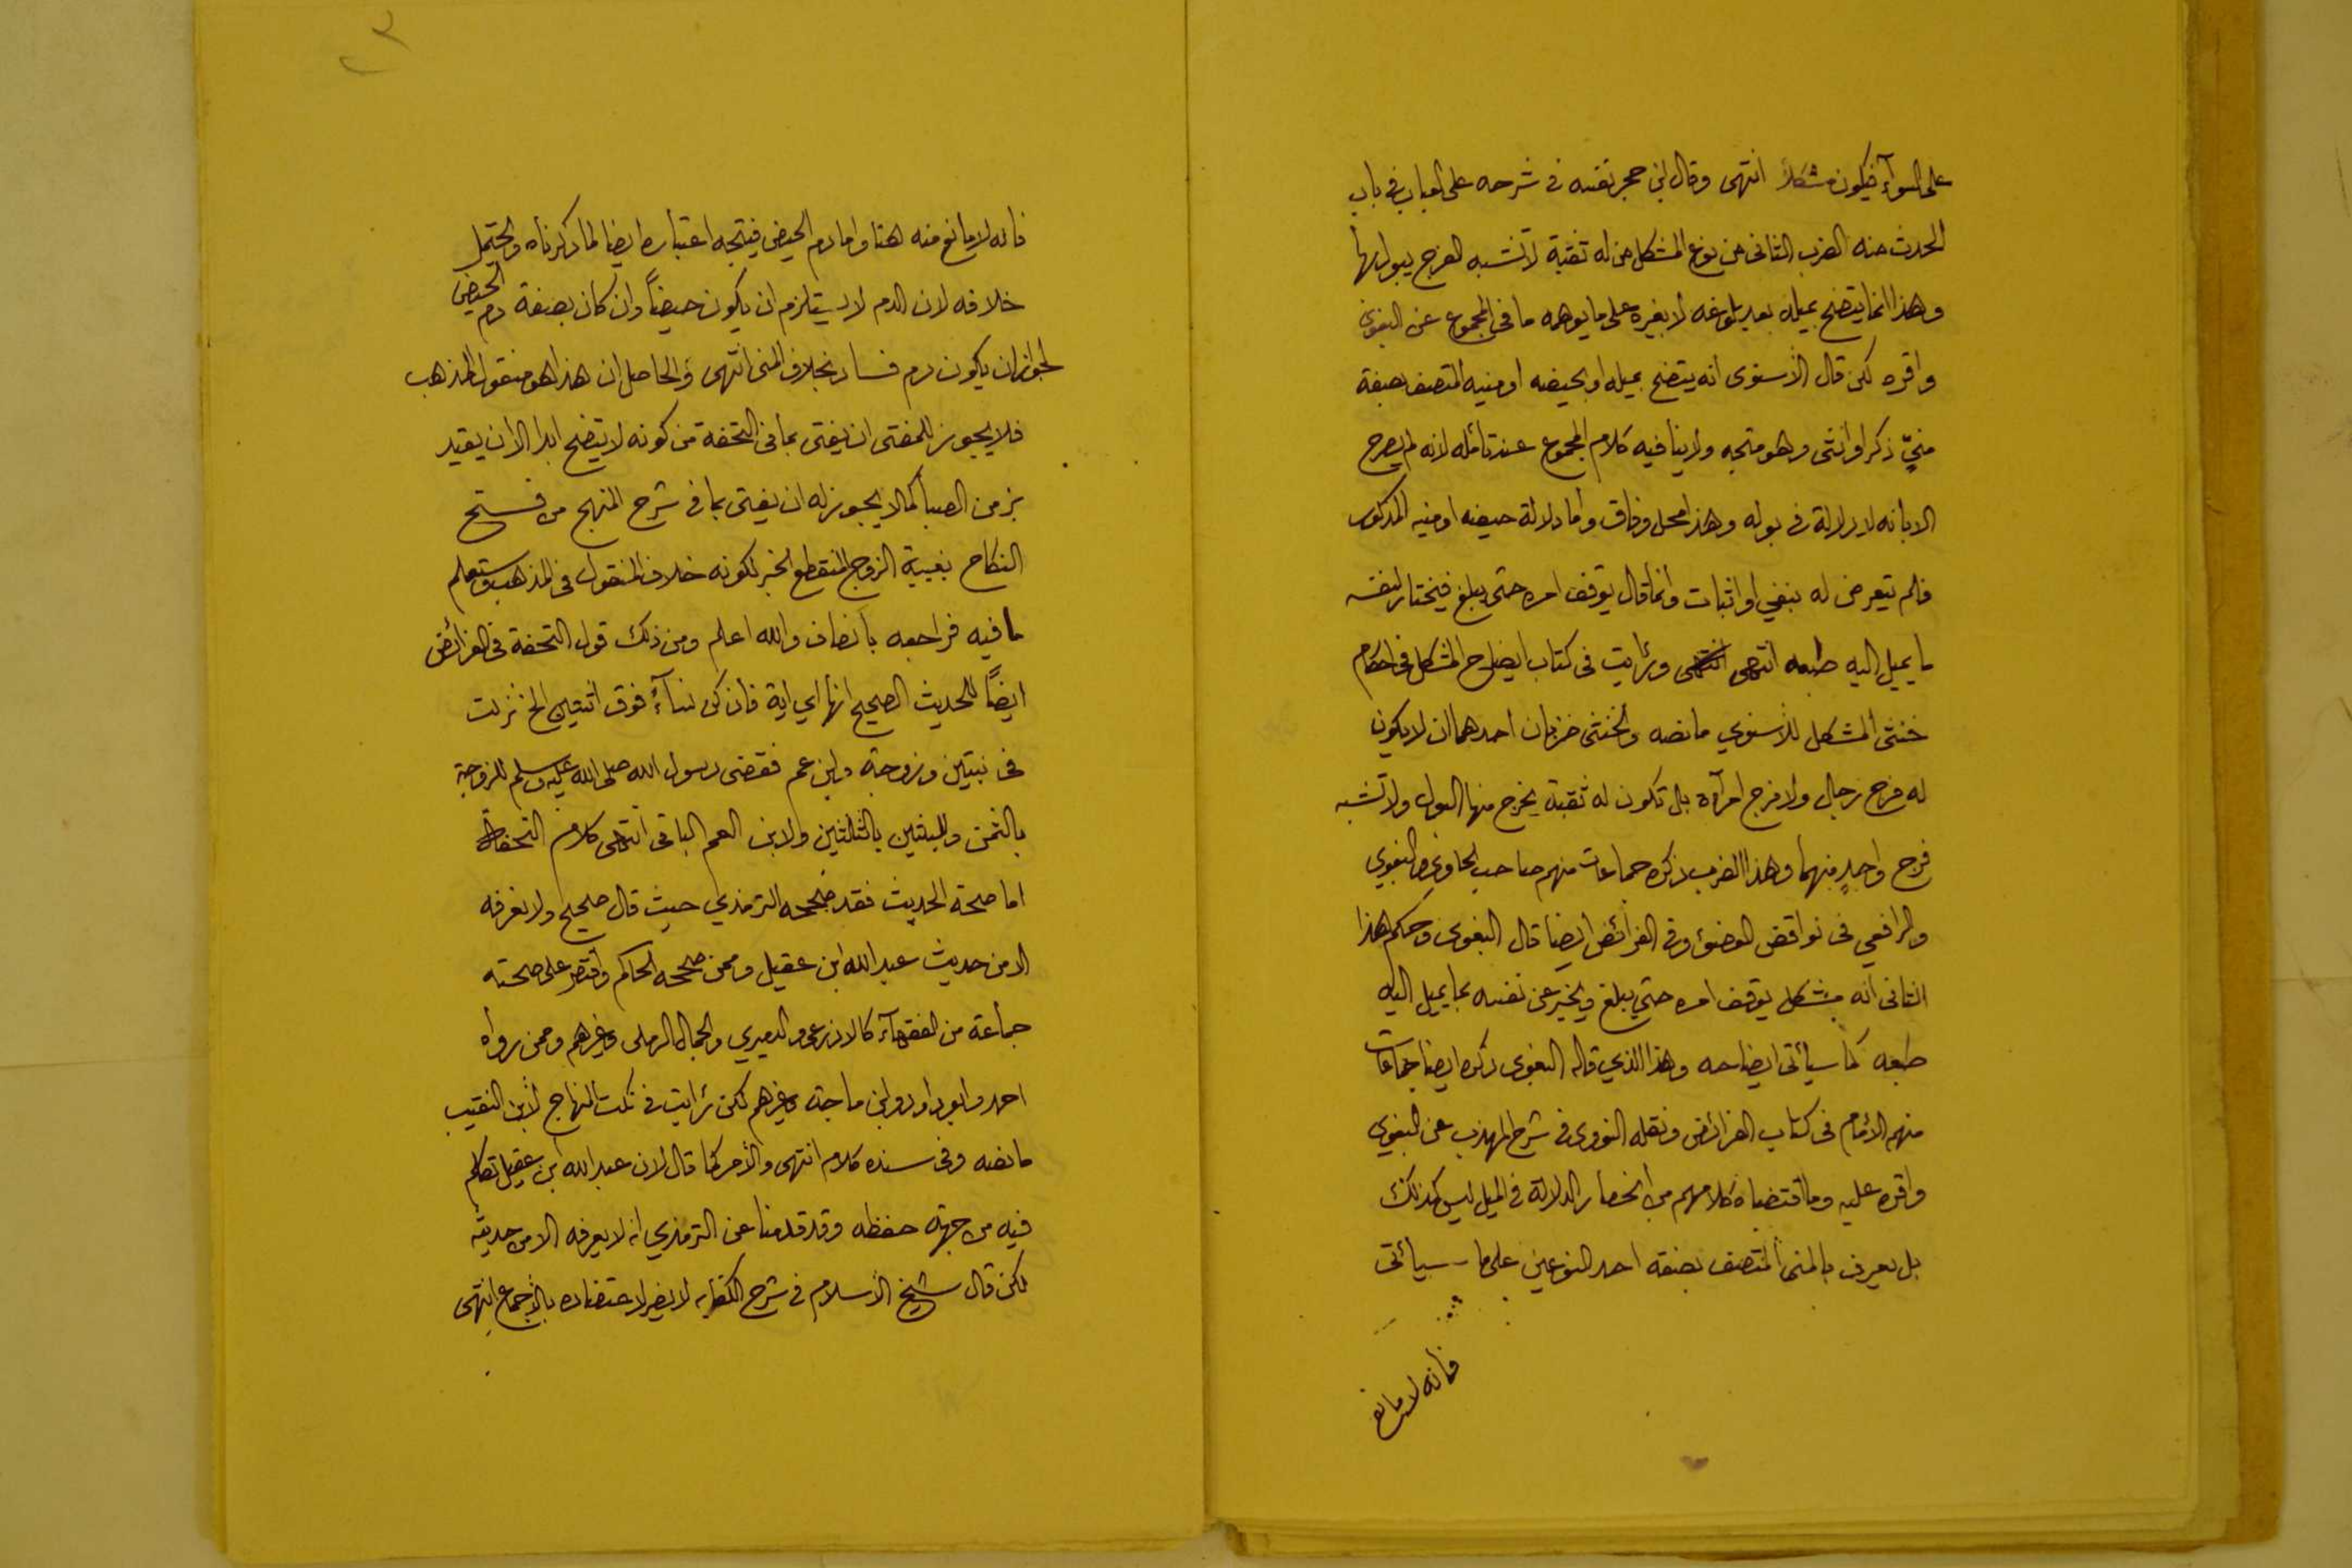 على السوآء فيكون مشكلاً انتهى وقال ابن حجر نفسه في شرحه على العباب في باب
الحدث منه الضرب الثاني من نوع المشكل من له ثقبة لا تشبه الفرج يبول بها
وهذا انما يتضح بميله بعد بلوغه لا بغيره على ما يوهمه ما في المجموع عن البغوى
واقره لكن قال الأسنوى انه يتضح بميله او بحيضه او منيه المتصف بصفة
منيّ ذكر او انثى وهو متجه ولا ينافيه كلام المجموع عند تأمله لانه لم يصرح
الا بانه لا دلالة في بوله وهذا محل وفاق وأما دلالة حيضه او منيه المذكور
فلم يتعرض له بنفي او اثبات وانما قال يتوقف امره حتى يبلغ فيختار لنفسه
ما يميل اليه طبعه انتهى ورئايت فى كتاب ايضاح المشكل فى احكام
خنثى المشكل للأسنوي ما نصه والخنثى ضربان احدهما ان لا يكون
له فرج رجال ولا فرج امرأة بل تكون له ثقبة يخرج منها البول ولا تشبه
فرج واحدٍ منهما وهذا الضرب ذكره جماعات منهم صاحب الحاوى والبغوي
والرافعي فى نواقض الوضوء وفى الفرائض ايضا قال البغوى وحكم هذا
الثانى انه مشكل يوقف امره حتي يبلغ ويخبر عن نفسه بما يميل اليه
طبعه كما سيأتى ايضاحه وهذا الذي قاله البغوى ذكره ايضا جماعات
منهم الأمام فى كتاب الفرائض ونقله النووى فى شرح المهذب عن البغوي
واقره عليه وما اقتضاه كلامهم من انحصار الدلالة فى الميل ليس كذلك
بل يعرف بالمنى المتصف بصفة احد النوعين على ما سيأتى
فانه لا مانع
فانه لا مانع منه هنا واما دم الحيض فيتجه اعتباره ايضا لما ذكرناه ويحتمل
خلافه لان الدم لا يستلزم ان يكون حيضاً وان كان بصفة دم الحيض
لجواز ان يكون دم فساد بخلاف المنى انتهى والحاصل ان هذا هو منقول المذهب
فلا يجوز للمفتى ان يفتى بما في التحفة من كونه لا يتضح ابدا الا ان يقيد
بزمن الصبا كما لا يجوز له ان يفتى بما في شرح المنهج من فسخ
النكاح بغيبة الزوج المنقطع الخبر لكونه خلاف المنقول فى المذهب وستعلم
ما فيه فراجعه بأنصاف والله اعلم ومن ذلك قول التحفة فى الفرائض
ايضاً للحديث الصحيح انها اي اية فان كن نساءً فوق اثنتين الخ نزلت
فى بنتين وزوجة وابن عم فقضى رسول الله صلى الله عليه وسلم للزوجة
بالثمن وللبنتين بالثلثين ولابن العم الباقى انتهى كلام التحفة
اما صحة الحديث فقد صححه الترمذي حيث قال صحيح ولا نعرفه
الا من حديث عبد الله ابن عقيل وممن صححه الحاكم واقتصر على صحته
جماعة من الفقهآء كالاذرعى والدميري والجمال الرملى وغيرهم وممن رواه
احمد وابو داود وابن ماجة وغيرهم لكن رئايت فى نكت المنهاج لابن النقيب
ما نصه وفى سنده كلام انتهى والأمر كما قال لان عبد الله ابن عقيل تكلم
فيه من جهة حفظه وقد قدمنا عن الترمذي انه لا يعرفه الا من حديثه
لكن قال شيخ الأسلام فى شرح الكفاية لا يضر لاعتضاده بالأجماع انتهى